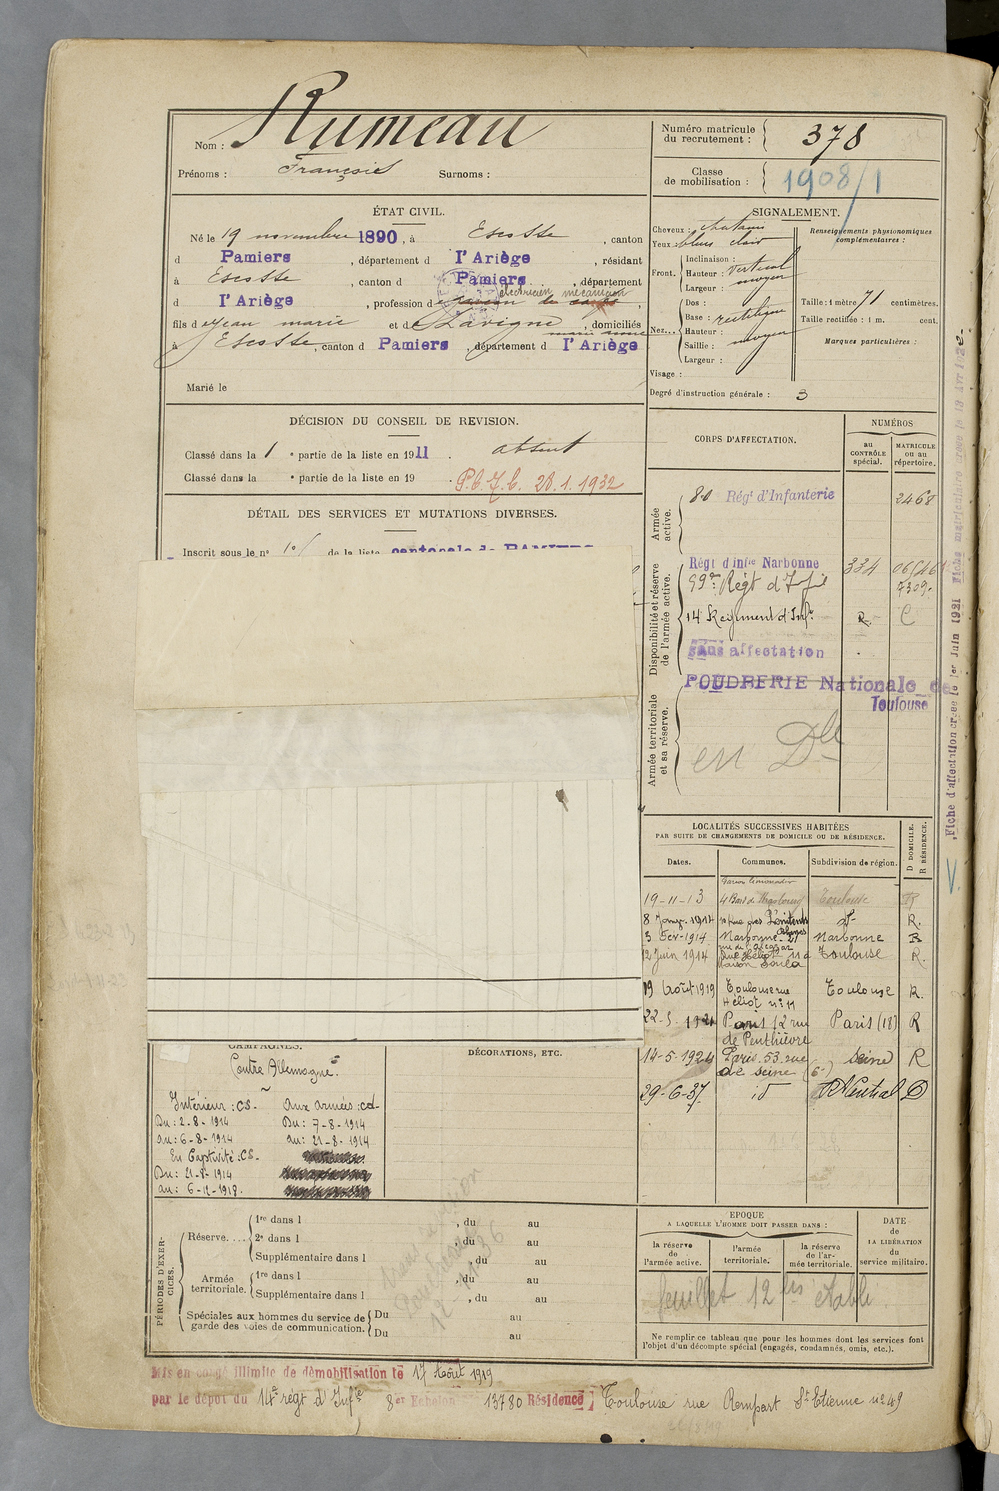 Nom : Rumeau
Prénoms : François Surnoms :
Numéro matricule du recrutement : 378
Classe de mobilisation : 1908/1
ÉTAT CIVIL.
Né le 19 novembre 1890, à Escosse, canton
d Pamiers, département d l'Ariège, résidant
à Escosse, canton d Pamiers, département
d l'Ariège, profession d électricien mécanicien
fils d e Jean marie et d e Lavigne marie anne, domiciliés
à Escosse, canton d Pamiers, département d l'Ariège
Marié le
SIGNALEMENT.
Cheveux : chatains
Yeux bleus clair
Front. Inclinaison : vertical
Hauteur :
Largeur : moyen
Nez... Dos :
Base : rectiligne
Hauteur :
Saillie : moyen
Largeur :
Visage :
Degré d'instruction générale : 3
Renseignements physionomiques complémentaires :
Taille : 1 mètre 71 centimètres.
Taille rectifiée : 1 m. cent.
Marques particulières :
DÉCISION DU CONSEIL DE REVISION.
Classé dans la 1e partie de la liste en 1911. absent
Classé dans la e partie de la liste en 19 . P.b.7.b. 28.1.1932
DÉTAIL DES SERVICES ET MUTATIONS DIVERSES.
Inscrit sous le n° de la liste cantonale de PAMIERS
CORPS D'AFFECTATION.
NUMÉROS
au CONTRÔLE spécial.
MATRICULE ou au répertoire.
Armée active.
80 Régt d'Infanterie 2468
Disponibilité et réserve de l'armée active.
Régt d'infie Narbonne 334
99e Régt d'Infie
14 Régiment d'Infie R. C
sans affectation
Armée territoriale et sa réserve.
POUDRERIE Nationale de
Toulouse
en Dle
Fiche d'affectation créée le 1er Juin 1921
LOCALITÉS SUCCESSIVES HABITÉES
PAR SUITE DE CHANGEMENTS DE DOMICILE OU DE RÉSIDENCE.
Dates. Communes. Subdivision de région. D DOMICILE. R RÉSIDENCE.
garçon limonadier
19-11-13 Toulouse R
8 Janvr. 1914 rue des Pénitents Blancs dt R.
3 Fév-1914 Narbonne Narbonne R
12 Juin 1914 rue Héliot 11 Maison Soula Toulouse R.
19 Août 1919 Toulouse rue Héliot n° 11 Toulouse R.
22-5. 1921 Paris 12 rue de Penthièvre Paris (18) R
14-5-1924 Paris. 53 rue de Seine (6e) Seine R
29-6-37 id D
CAMPAGNES.
Contre Allemagne.
Intérieur : CS. Aux armées : cd.
Du : 2-8-1914 Du : 7-8-1914
au : 6-8-1914 au : 21-8-1914
En Captivité : CS.
Du : 21-8-1914
au : 6-12-1918.
DÉCORATIONS, ETC.
PÉRIODES D'EXERCICES.
Réserve.... 1re dans l , du au
2e dans l , du au
Supplémentaire dans l , du au
Armée territoriale. 1re dans l , du au
Supplémentaire dans l , du au
Spéciales aux hommes du service de garde des voies de communication. Du au
Du au
EPOQUE
A LAQUELLE L'HOMME DOIT PASSER DANS :
la réserve de l'armée active.
l'armée territoriale.
la réserve de l'armée territoriale.
DATE de LA LIBÉRATION du service militaire.
feuillet 12 bis établi
Ne remplir ce tableau que pour les hommes dont les services font l'objet d'un décompte spécial (engagés, condamnés, omis, etc.).
Mis en congé illimité de démobilisation le 17 Août 1919
par le dépôt du 14e régt d'Infie 8er Echelon 13780 Résidence Toulouse rue Rempart St Etienne n° 49